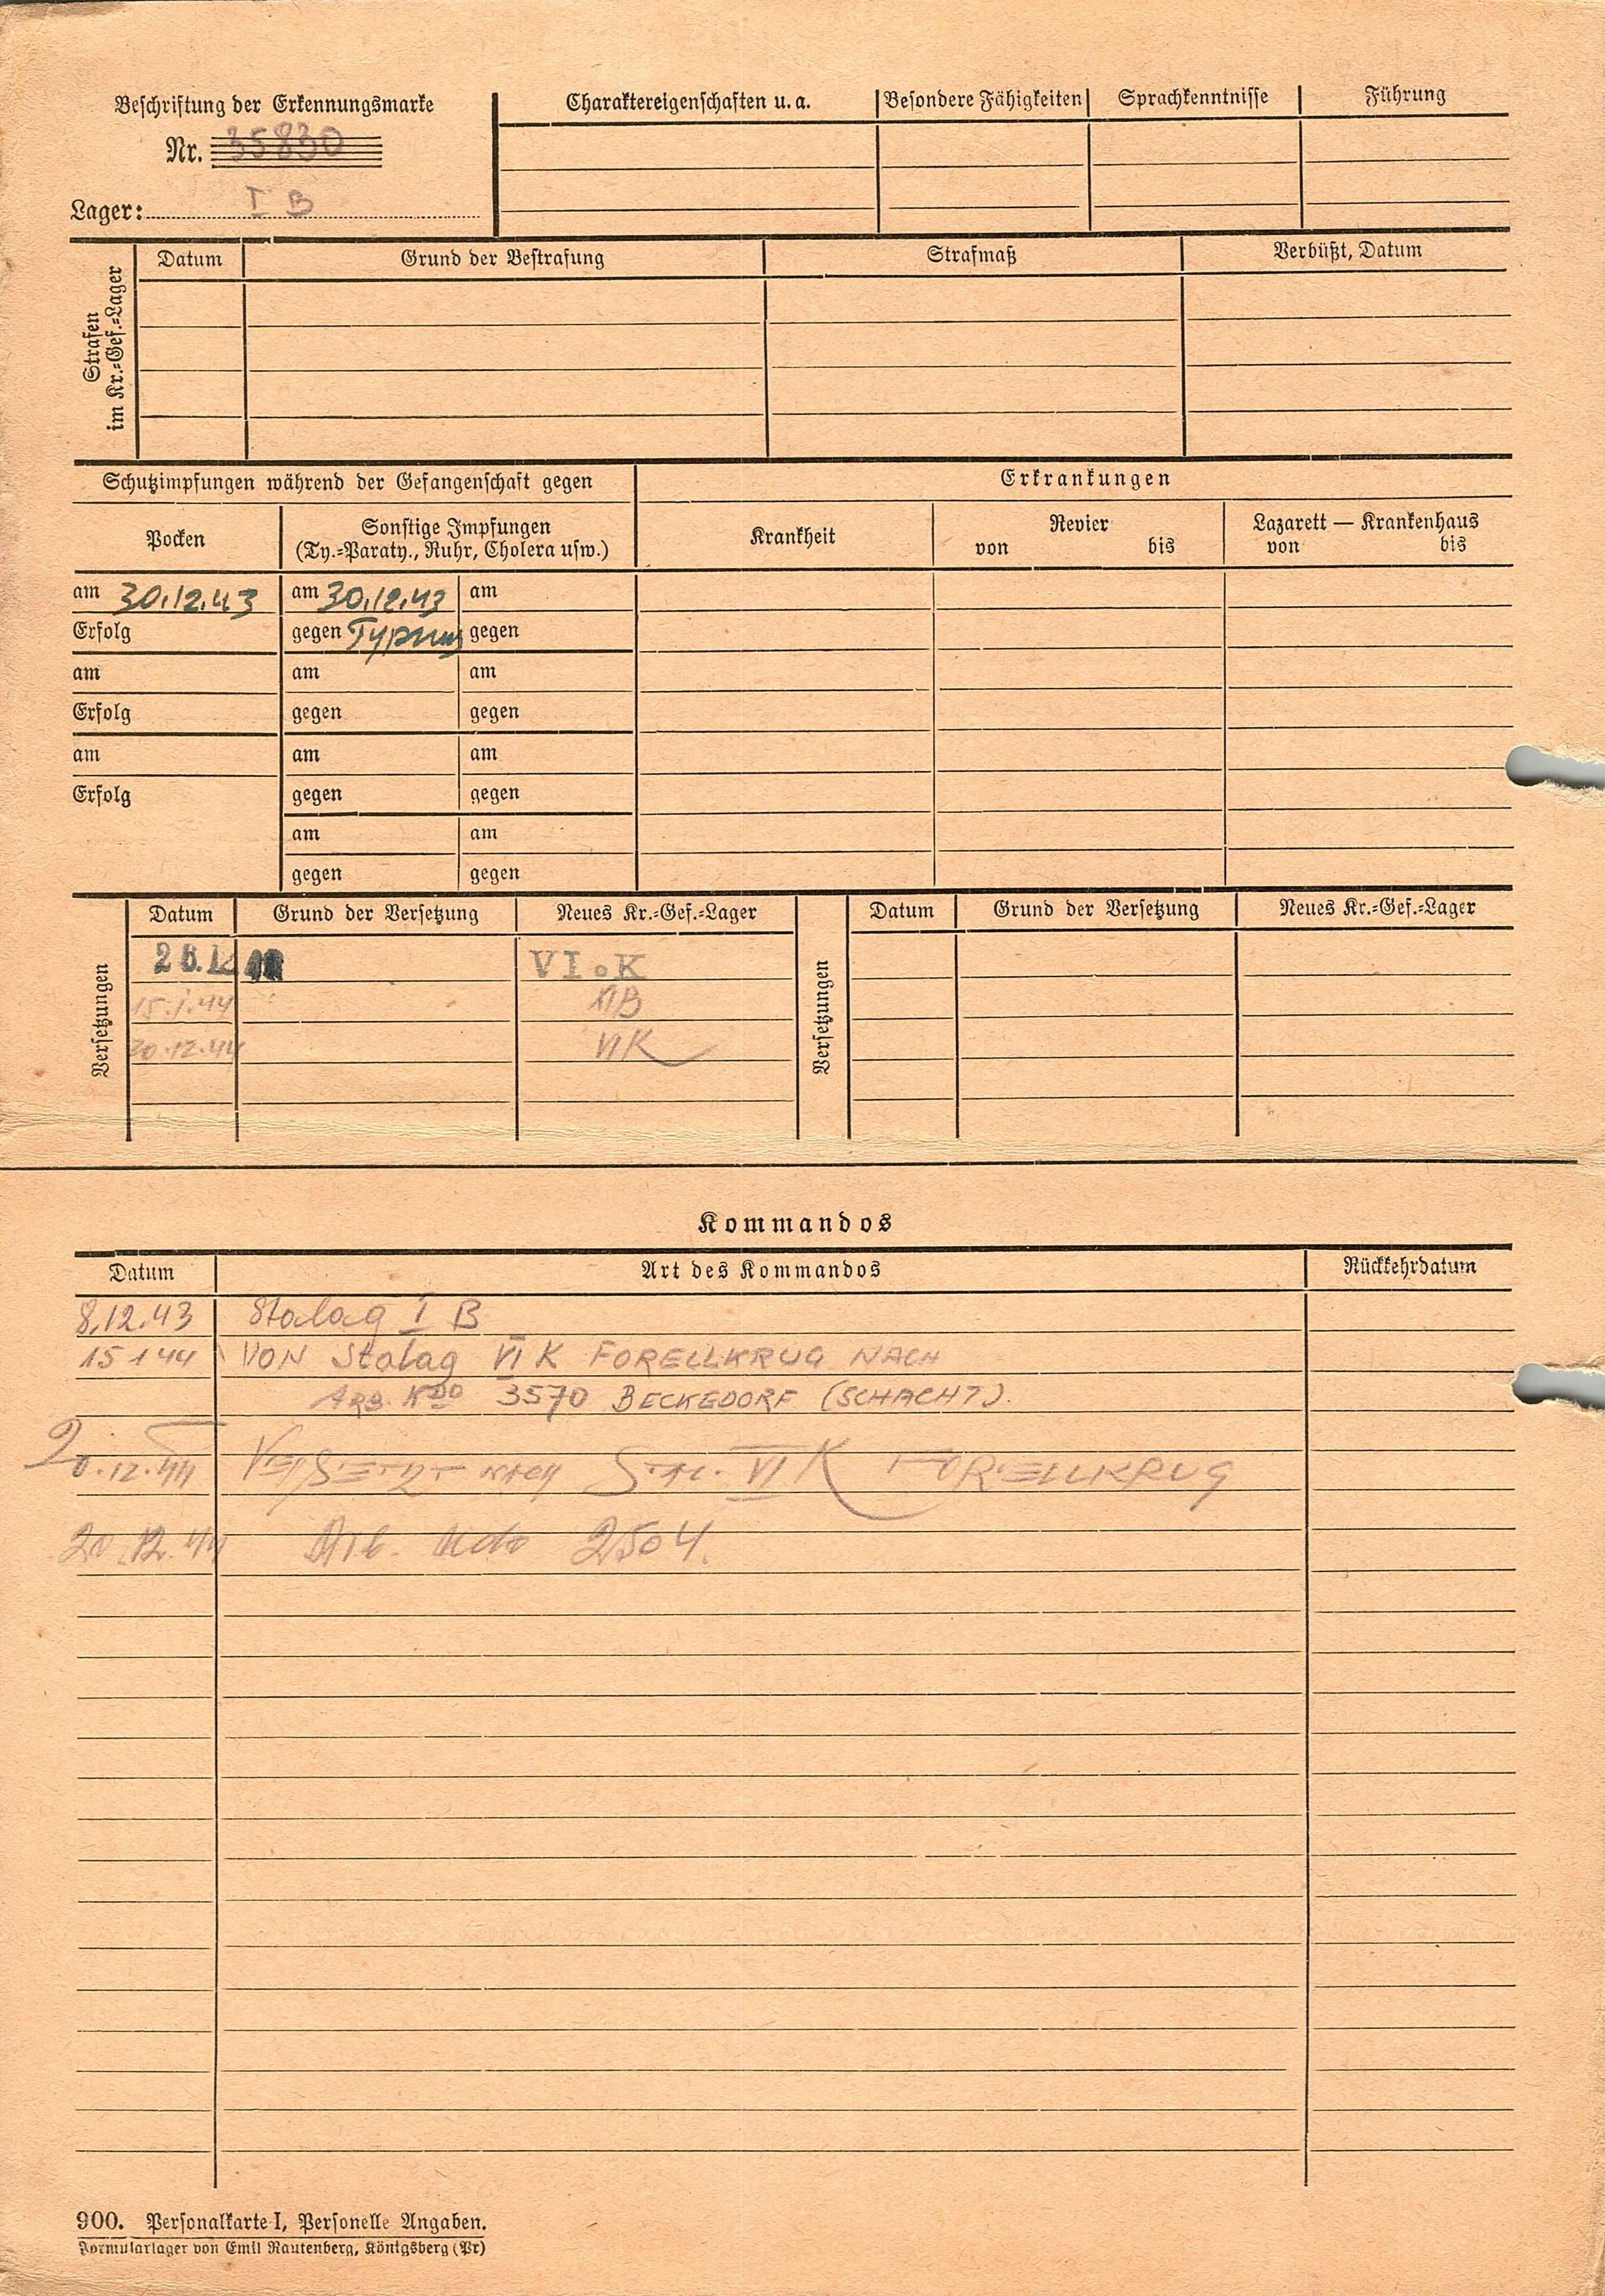 Beschriftung der Erkennungsmarke
Nr. 35830
Lager: I B
Charaktereigenschaften u. a.
Besondere Fähigkeiten
Sprachkenntnisse
Führung
Strafen
im Kr.=Gef.=Lager
Datum
Grund der Bestrafung
Strafmaß
Verbüßt, Datum
Schutzimpfungen während der Gefangenschaft gegen
Erkrankungen
Pocken
Sonstige Impfungen
(Ty.=Paraty., Ruhr, Cholera usw.)
Krankheit
Revier
von bis
Lazarett — Krankenhaus
von bis
am 30.12.43 am 30.12.43 am
Erfolg gegen Typhus gegen
am am am
Erfolg gegen gegen
am am am
Erfolg gegen gegen
am am
gegen gegen
Versetzungen
Datum Grund der Versetzung Neues Kr.=Gef.=Lager
VI.K
15.1.44 XIB
20.12.44 VIK
Versetzungen
Datum Grund der Versetzung Neues Kr.=Gef.=Lager
Kommandos
Datum Art des Kommandos Rückkehrdatum
8.12.43 Stalag I B
15 1 44 VON Stalag VI K FORELLKRUG NACH
ARB. KDO 3570 BECKEDORF (SCHACHT).
20.12.44 VERSETZT NACH VI K FORELLKRUG
20.12.44 Arb. Kdo 2504.
900. Personalkarte I, Personelle Angaben.
Formularlager von Emil Rautenberg, Königsberg (Pr)